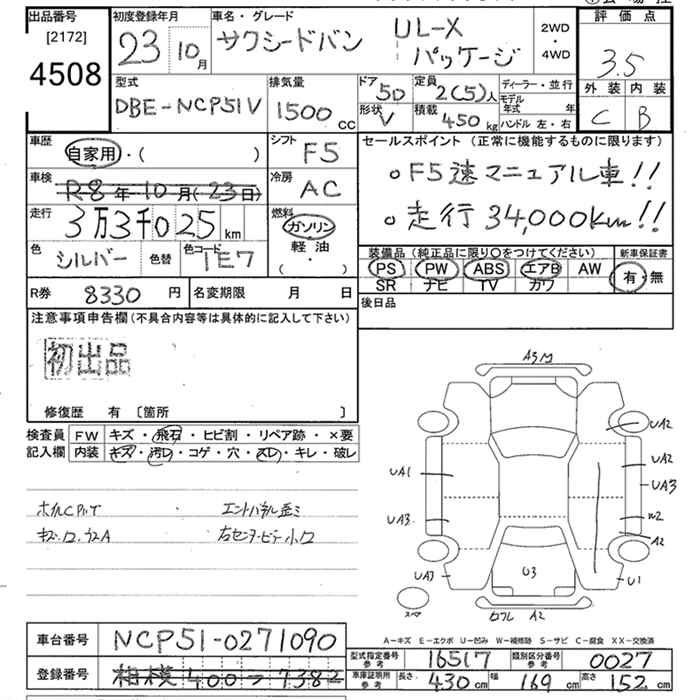 出品番号
[2172]
4508
初度登録年月
23 10月
車名・グレード
サクシードバン
UL-X
パッケージ
2WD
・
4WD
評価点
3.5
外装 内装
C B
型式
DBE-NCP51V
排気量
1500cc
ドア
5D
形状
V
定員
2(5)人
積載
450kg
ディーラー・並行
モデル年式 年
ハンドル 左・右
車歴
自家用・( )
シフト
F5
車検
R8年10月(23日)
冷房
AC
走行
3万3千025km
燃料
ガソリン
軽油
( ・ )
色
シルバー
色替
色コード
1E7
セールスポイント (正常に機能するものに限ります)
○F5速マニュアル車!!
○走行34,000Km!!
装備品 (純正品に限り○をつけてください)
新車保証書
PS PW ABS エアB AW
SR ナビ TV カワ
有・無
R券 8330円
名変期限 月 日
後日品
注意事項申告欄(不具合内容等は具体的に記入して下さい)
初出品
修復歴 有 〔箇所 〕
検査員
記入欄
FW キズ・飛石・ヒビ割・リペア跡・×要
内装 キズ・汚レ・コゲ・穴・スレ・キレ・破レ
UA2
UA1
UA2
UA3
UA3
W2
A2
UA3
U3
U1
A2
A-キズ E-エクボ U-凹み W-補修跡 S-サビ C-腐食 XX-交換済
車台番号 NCP51-0271090
登録番号 相模 400 つ 7382
型式指定番号
参考
16517
類別区分番号
参考
0027
車庫証明用
参考
長さ 430cm
幅 169cm
高さ 152cm